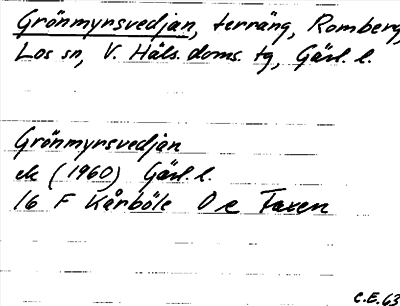 Grönmyrsvedjan, terräng, Romberg,
Los sn, V. Häls. doms. tg, Gävl. l.
Grönmyrsvedjan
ek (1960) Gävl. l.
16 F Kårböle 0 e Faxen
C.E. 63